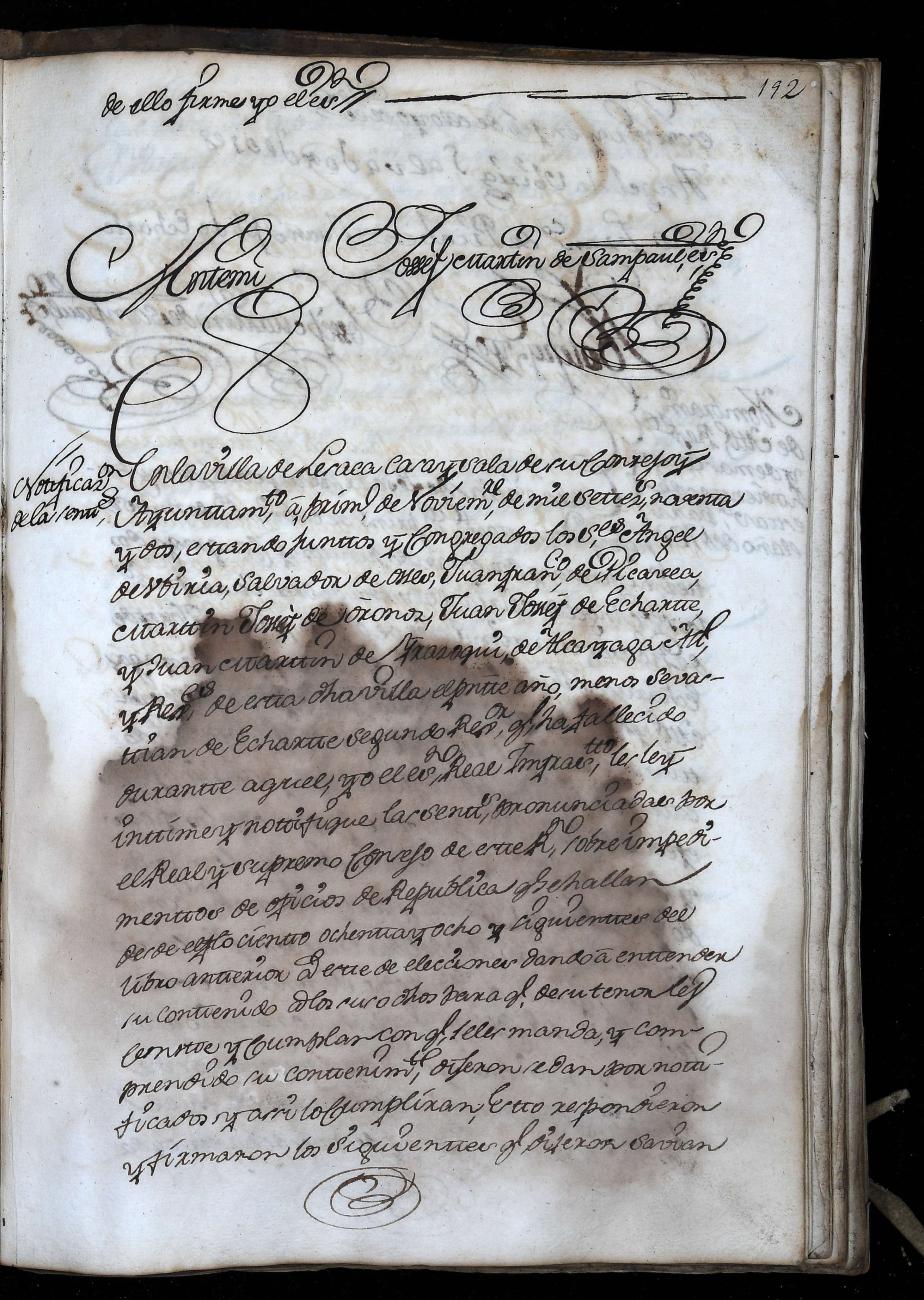 de ello firme yo el es.no
192
Antemi Jossef Martin de Sampaul, es.no
Notificaz.on
de la sent.a
En la villa de Lesaca Casa y sala de su Consejo y
Ayuntiam.to, â prim.o de Noviem.re de mil settez.s noventa
y dos, estando junttos y Congregados los S.res Angel
de Vbiria, Salvador de Osses, Juan fran.co de Picavea,
Martin Josef de Oronoz, Juan Josef de Echartte,
y Juan Martin de de Alcayaga All.e
y Rex.es de esta dha villa el press.te año, menos Sevas-
tian de Echartte segundo Rex.or q.e ha fallecido
durantte aquel, yo el es.no Real Infraes.tto, les ley
inttime y notifique las sent.as pronunciadas por
el Real y supremo Consejo de este R.no sobre impedi-
menttos de oficios de Republica q.e se hallan
desde el folio ciento ochentta y ocho y siguienttes del
libro antterior â este de elecciones dando â enttender
su conttenido â los suso dhos para q.e de su tenor les
Constte y Cumplan con q.e se les manda, y com-
prendido su conttenim.to, dijeron se dan por noti-
ficados y assi lo Cumpliran, Estto respondieron
y firmaron los siguienttes q.e dijeron savian